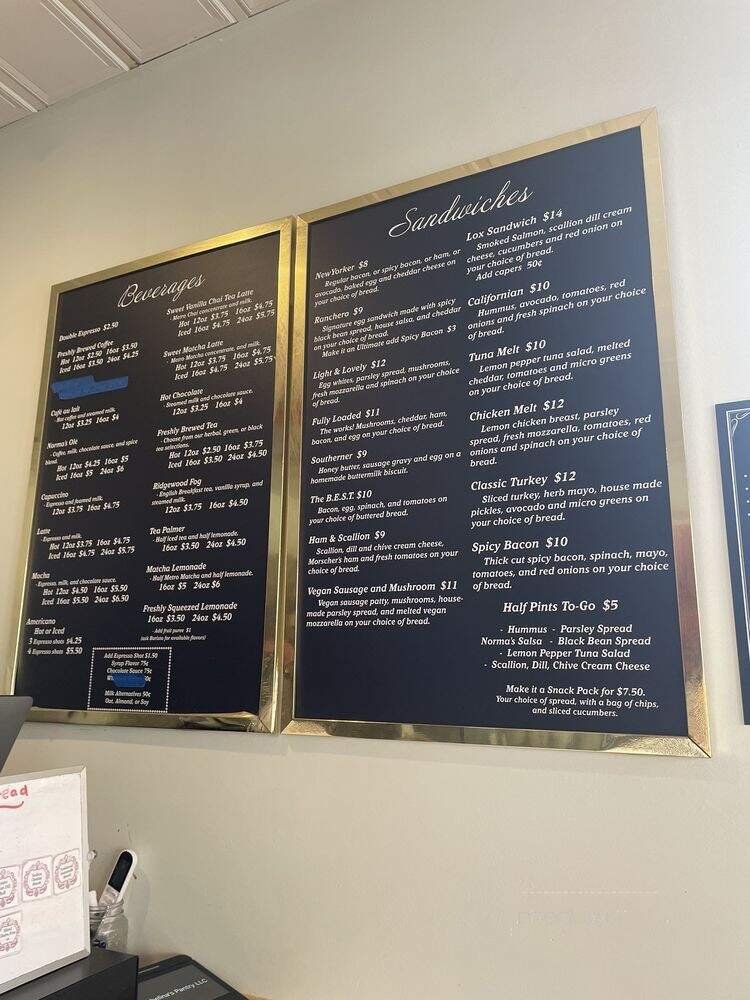 Beverages
Double Espresso $2.50
Freshly Brewed Coffee
Hot 12oz $2.50 16oz $3.50
Iced 16oz $3.50 24oz $4.25
Café au lait
- Hot coffee and steamed milk.
12oz $3.25 16oz $4
Norma's Olé
- Coffee, milk, chocolate sauce, and spice
blend.
Hot 12oz $4.25 16oz $5
Iced 16oz $5 24oz $6
Capuccino
- Espresso and foamed milk.
12oz $3.75 16oz $4.75
Latte
- Espresso and milk.
Hot 12oz $3.75 16oz $4.75
Iced 16oz $4.75 24oz $5.75
Mocha
- Espresso, milk, and chocolate sauce.
Hot 12oz $4.50 16oz $5.50
Iced 16oz $5.50 24oz $6.50
Americano
Hot or Iced
3 Espresso shots $4.25
4 Espresso shots $5.50
Sweet Vanilla Chai Tea Latte
- Metro Chai concentrate and milk.
Hot 12oz $3.75 16oz $4.75
Iced 16oz $4.75 24oz $5.75
Sweet Matcha Latte
- Metro Matcha concentrate, and milk.
Hot 12oz $3.75 16oz $4.75
Iced 16oz $4.75 24oz $5.75
Hot Chocolate
- Steamed milk and chocolate sauce.
12oz $3.25 16oz $4
Freshly Brewed Tea
- Choose from our herbal, green, or black
tea selections.
Hot 12oz $2.50 16oz $3.75
Iced 16oz $3.50 24oz $4.50
Ridgewood Fog
- English Breakfast tea, vanilla syrup, and
steamed milk.
12oz $3.75 16oz $4.50
Tea Palmer
- Half iced tea and half lemonade.
16oz $3.50 24oz $4.50
Matcha Lemonade
- Half Metro Matcha and half lemonade.
16oz $5 24oz $6
Freshly Squeezed Lemonade
16oz $3.50 24oz $4.50
- Add fruit puree $1
(ask Barista for available flavors)
Add Espresso Shot $1.50
Syrup Flavor 75¢
Chocolate Sauce 75¢
Milk Alternatives 50¢
Oat, Almond, or Soy
Sandwiches
NewYorker $8
Regular bacon, or spicy bacon, or ham, or
avocado, baked egg and cheddar cheese on
your choice of bread.
Ranchero $9
Signature egg sandwich made with spicy
black bean spread, house salsa, and cheddar
on your choice of bread.
Make it an Ultimate add Spicy Bacon $3
Light & Lovely $12
Egg whites, parsley spread, mushrooms,
fresh mozzarella and spinach on your choice
of bread.
Fully Loaded $11
The works! Mushrooms, cheddar, ham,
bacon, and egg on your choice of bread.
Southerner $9
Honey butter, sausage gravy and egg on a
homemade buttermilk biscuit.
The B.E.S.T. $10
Bacon, egg, spinach, and tomatoes on
your choice of buttered bread.
Ham & Scallion $9
Scallion, dill and chive cream cheese,
Morscher's ham and fresh tomatoes on your
choice of bread.
Vegan Sausage and Mushroom $11
Vegan sausage patty, mushrooms, house-
made parsley spread, and melted vegan
mozzarella on your choice of bread.
Lox Sandwich $14
Smoked Salmon, scallion dill cream
cheese, cucumbers and red onion on
your choice of bread.
Add capers 50¢
Californian $10
Hummus, avocado, tomatoes, red
onions and fresh spinach on your choice
of bread.
Tuna Melt $10
Lemon pepper tuna salad, melted
cheddar, tomatoes and micro greens
on your choice of bread.
Chicken Melt $12
Lemon chicken breast, parsley
spread, fresh mozzarella, tomatoes, red
onions and spinach on your choice of
bread.
Classic Turkey $12
Sliced turkey, herb mayo, house made
pickles, avocado and micro greens on
your choice of bread.
Spicy Bacon $10
Thick cut spicy bacon, spinach, mayo,
tomatoes, and red onions on your choice
of bread.
Half Pints To-Go $5
- Hummus - Parsley Spread
Norma's Salsa - Black Bean Spread
- Lemon Pepper Tuna Salad
- Scallion, Dill, Chive Cream Cheese
Make it a Snack Pack for $7.50.
Your choice of spread, with a bag of chips,
and sliced cucumbers.
Pantry LLC